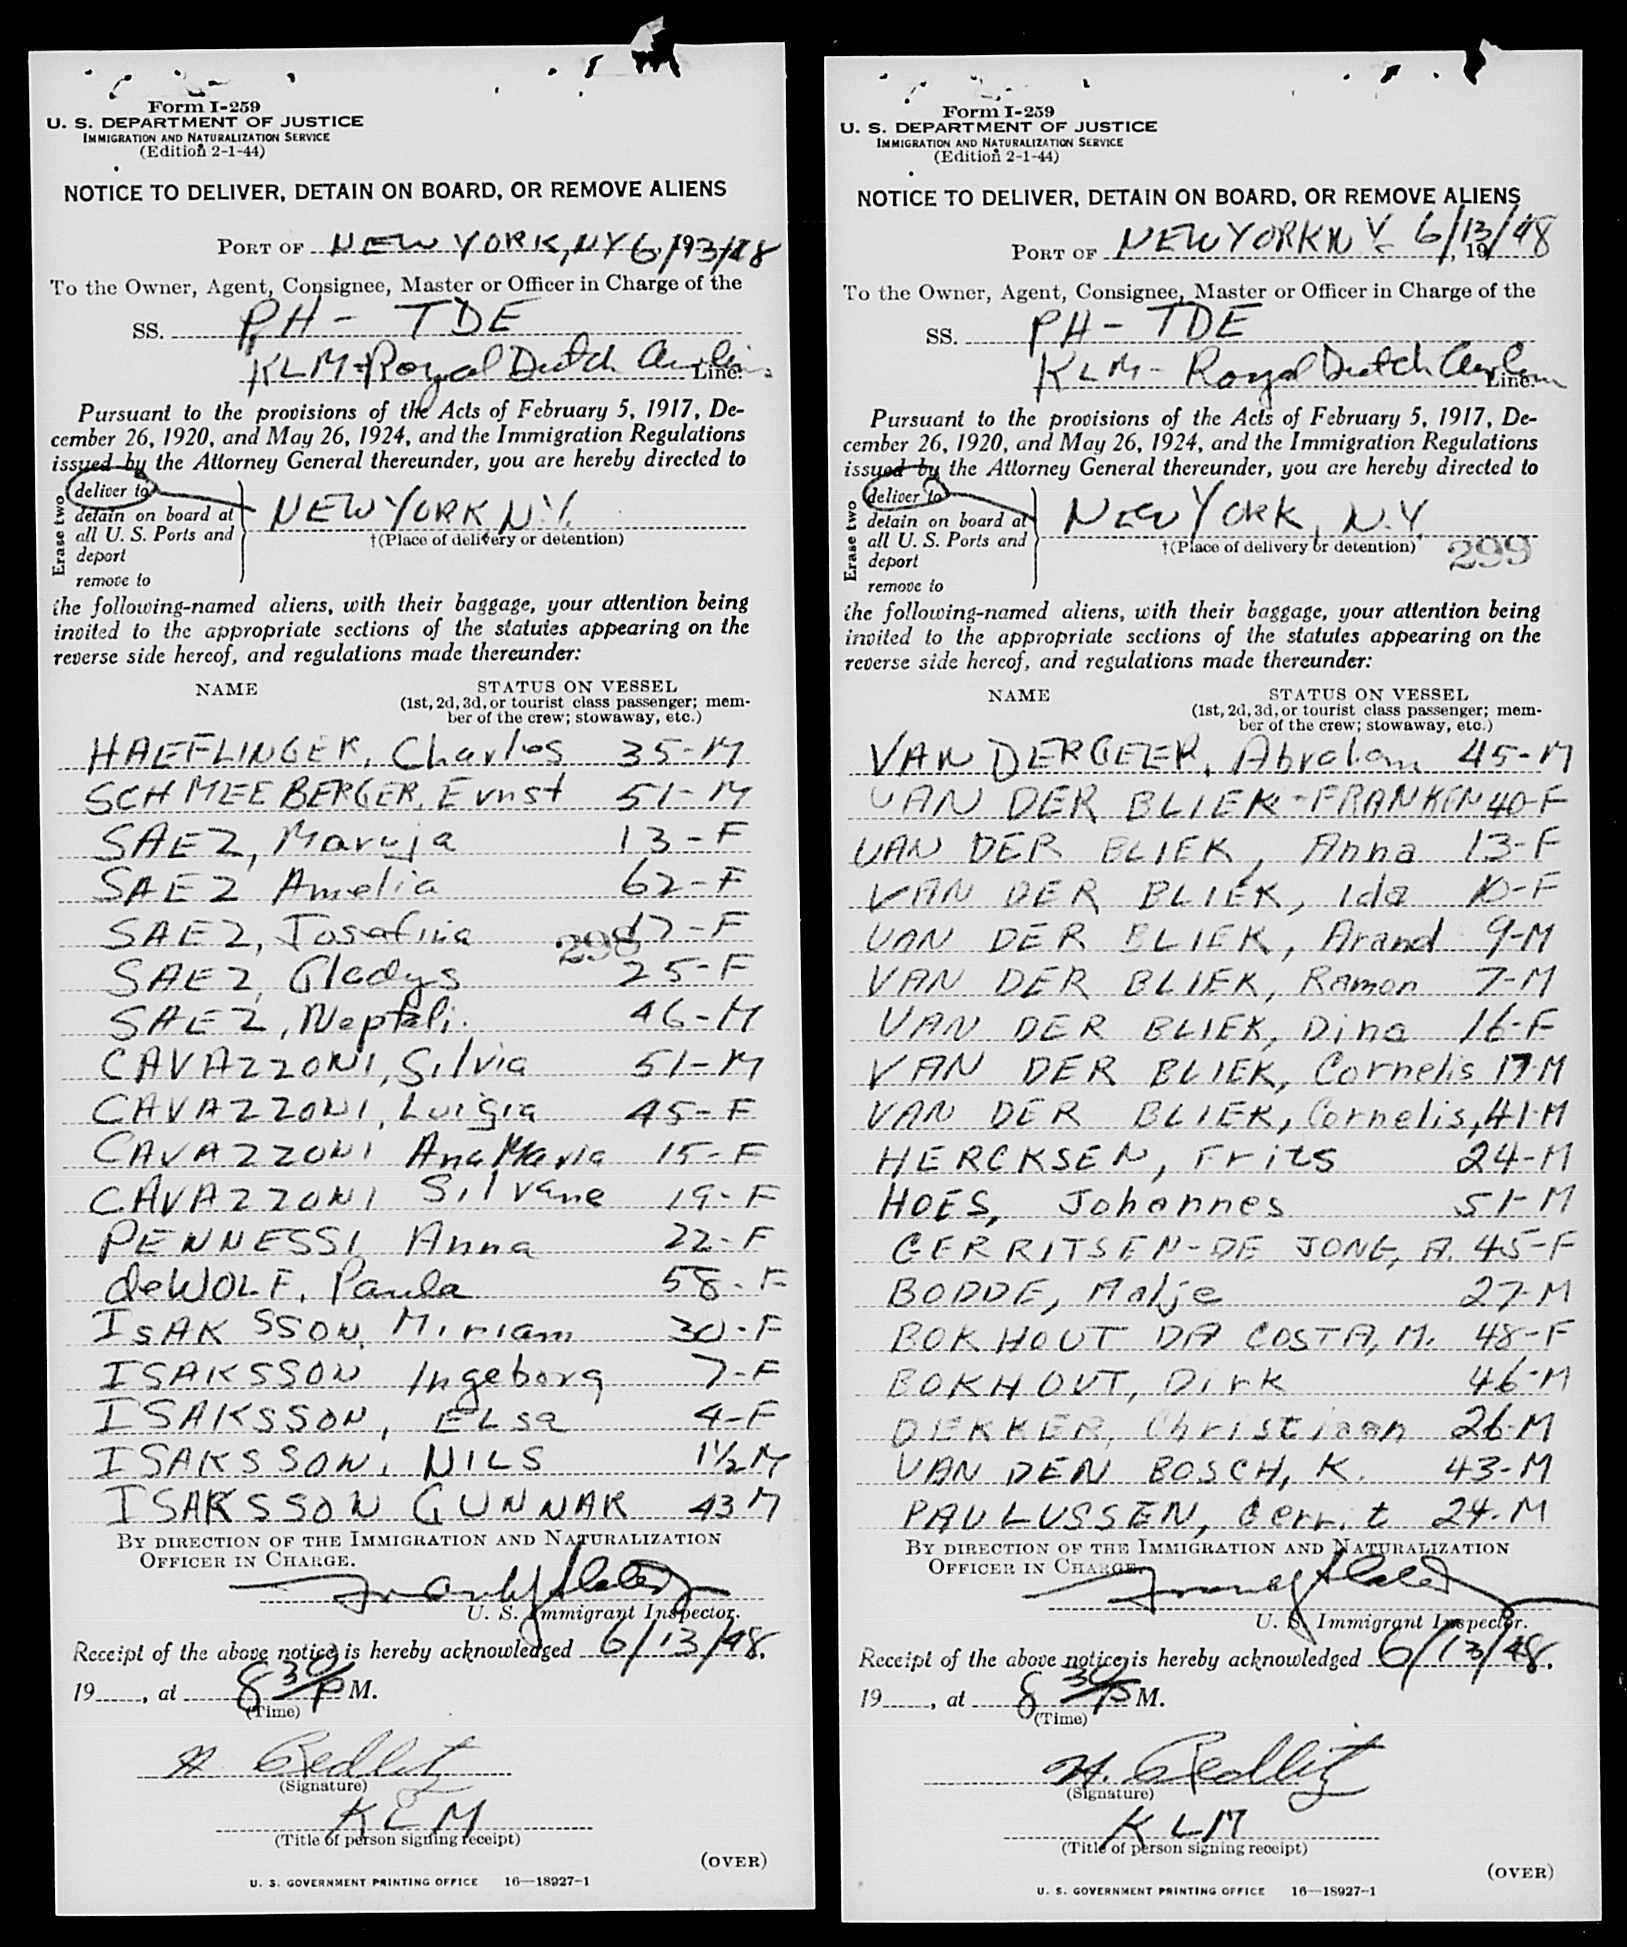 Form I-259
U. S. DEPARTMENT OF JUSTICE
IMMIGRATION AND NATURALIZATION SERVICE
(Edition 2-1-44)
NOTICE TO DELIVER, DETAIN ON BOARD, OR REMOVE ALIENS
PORT OF NEW YORK, NY 6/13/48, 19
To the Owner, Agent, Consignee, Master or Officer in Charge of the
SS. PH - TDE
KLM-Royal Dutch Airlines Line:
Pursuant to the provisions of the Acts of February 5, 1917, De-
cember 26, 1920, and May 26, 1924, and the Immigration Regulations
issued by the Attorney General thereunder, you are hereby directed to
Erase two
deliver to
detain on board at
all U. S. Ports and
deport
remove to
NEW YORK N.Y.
†(Place of delivery or detention)
the following-named aliens, with their baggage, your attention being
invited to the appropriate sections of the statutes appearing on the
reverse side hereof, and regulations made thereunder:
NAME STATUS ON VESSEL
(1st, 2d, 3d, or tourist class passenger; mem-
ber of the crew; stowaway, etc.)
HAEFLINGER, Charles 35-M
SCHMEEBERGER, Ernst 51-M
SAEZ, Maruja 13-F
SAEZ Amelia 62-F
SAEZ, Josefina 17-F
298
SAEZ, Gladys 25-F
SAEZ, Neptali. 46-M
CAVAZZONI, Silvia 51-M
CAVAZZONI, Luigia 45-F
CAVAZZONI AnaMaria 15-F
CAVAZZONI Silvane 19-F
PENNESSI, Anna 22-F
deWOLF, Paula 58-F
ISAKSSON, Miriam 30-F
ISAKSSON Ingeborg 7-F
ISAKSSON, ELSa 4-F
ISAKSSON, NILS 1½ M
ISAKSSON GUNNAR 43 M
BY DIRECTION OF THE IMMIGRATION AND NATURALIZATION
OFFICER IN CHARGE.
U. S. Immigrant Inspector.
Receipt of the above notice is hereby acknowledged 6/13/48.
19, at 8 30 P M.
(Time)
H. Redlitz
(Signature)
KLM
(Title of person signing receipt)
(OVER)
U. S. GOVERNMENT PRINTING OFFICE 16—18927-1
Form I-259
U. S. DEPARTMENT OF JUSTICE
IMMIGRATION AND NATURALIZATION SERVICE
(Edition 2-1-44)
NOTICE TO DELIVER, DETAIN ON BOARD, OR REMOVE ALIENS
PORT OF NEW YORK N.Y. 6/13/48, 19
To the Owner, Agent, Consignee, Master or Officer in Charge of the
SS. PH - TDE
KLM - Royal Dutch Airlines Line
Pursuant to the provisions of the Acts of February 5, 1917, De-
cember 26, 1920, and May 26, 1924, and the Immigration Regulations
issued by the Attorney General thereunder, you are hereby directed to
Erase two
deliver to
detain on board at
all U. S. Ports and
deport
remove to
NEW YORK, N.Y.
†(Place of delivery or detention)
299
the following-named aliens, with their baggage, your attention being
invited to the appropriate sections of the statutes appearing on the
reverse side hereof, and regulations made thereunder:
NAME STATUS ON VESSEL
(1st, 2d, 3d, or tourist class passenger; mem-
ber of the crew; stowaway, etc.)
VAN DERGEER, Abraham 45-M
VAN DER BLIEK-FRANKEN 40-F
VAN DER BLIEK, Anna 13-F
VAN DER BLIEK, Ida 10-F
VAN DER BLIEK, Arand 9-M
VAN DER BLIEK, Ramon 7-M
VAN DER BLIEK, Dina 16-F
VAN DER BLIEK, Cornelis 17-M
VAN DER BLIEK, Cornelis, 41-M
HERCKSEN, Frits 24-M
HOES, Johannes 51-M
GERRITSEN-DE JONG, A. 45-F
BODDE, Malje 27-M
BOKHOUT DA COSTA, M. 48-F
BOKHOUT, Dirk 46-M
DEKKER, Christiaan 26-M
VAN DEN BOSCH, K. 43-M
PAULUSSEN, Gerrit 24-M
BY DIRECTION OF THE IMMIGRATION AND NATURALIZATION
OFFICER IN CHARGE.
U. S. Immigrant Inspector.
Receipt of the above notice is hereby acknowledged 6/13/48.
19, at 8 30 P M.
(Time)
H. Redlitz
(Signature)
KLM
(Title of person signing receipt)
(OVER)
U. S. GOVERNMENT PRINTING OFFICE 16—18927-1